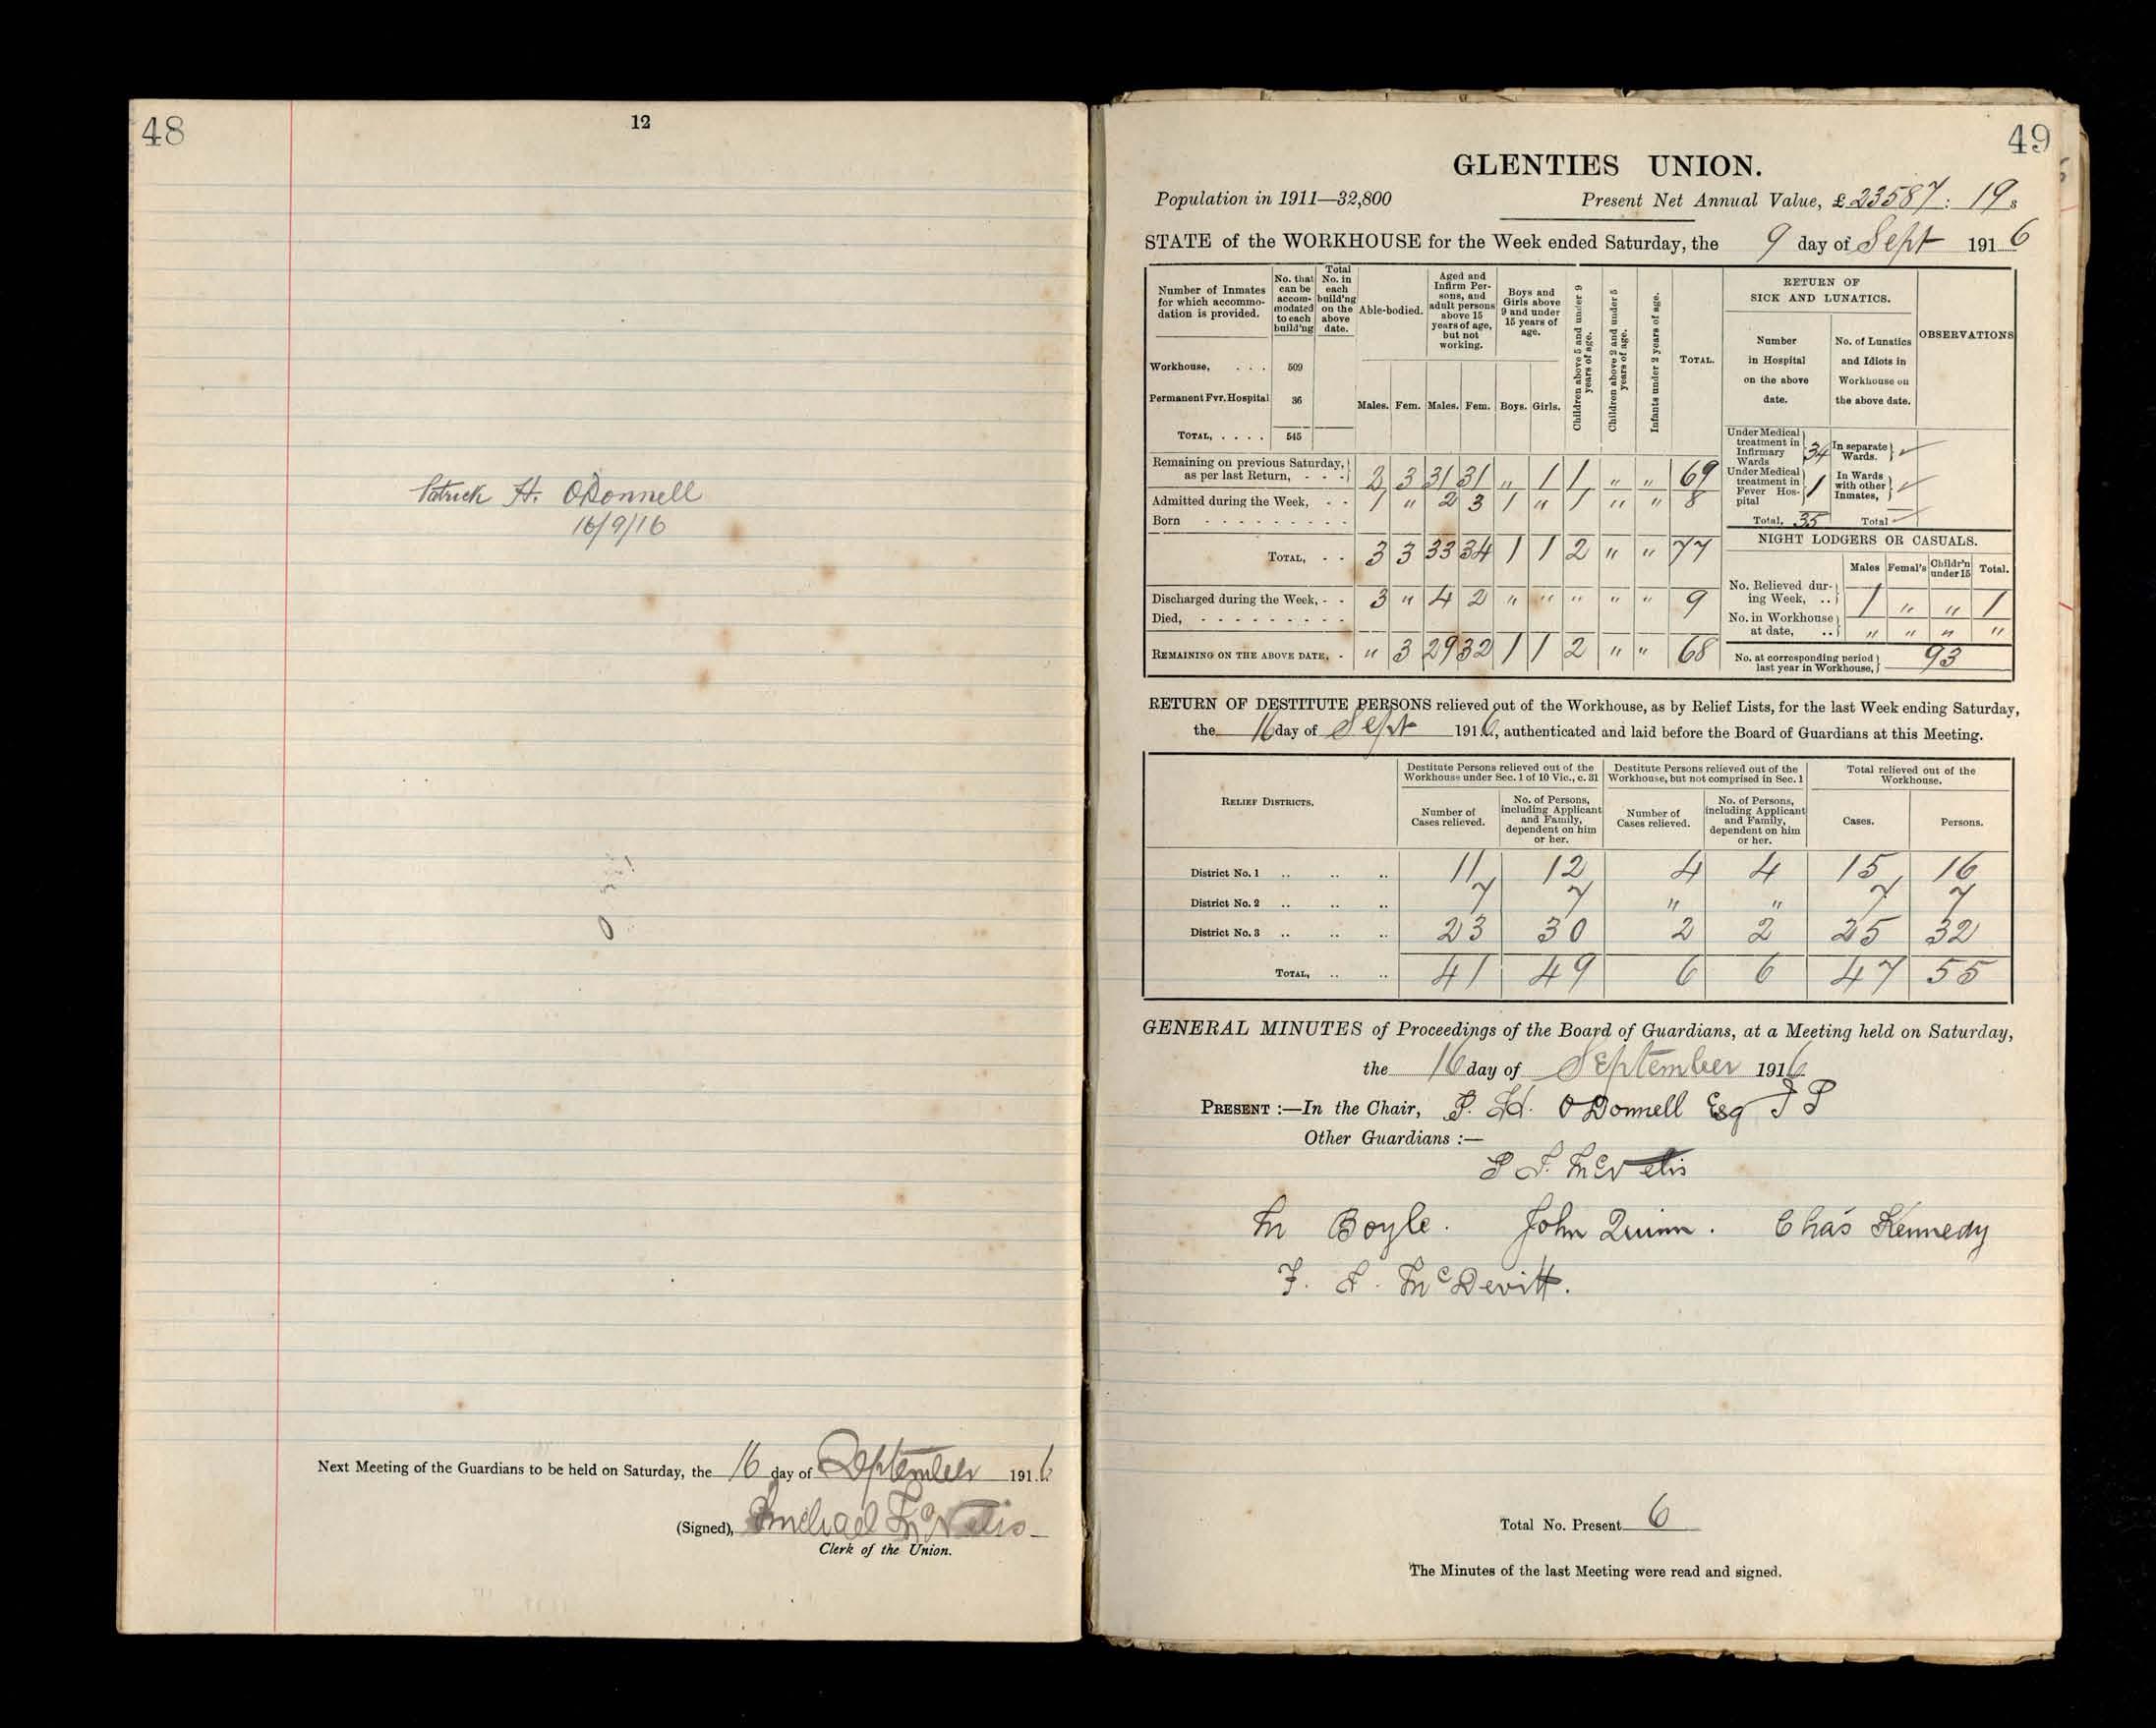 48
12
Patrick H. O'Donnell
16/9/16
Next Meeting of the Guardians to be held on Saturday, the 16 day of September 1916
(Signed), Michael McNelis
Clerk of the Union.
49
GLENTIES UNION.
Population in 1911—32,800 Present Net Annual Value, £23587: 19s
STATE of the WORKHOUSE for the Week ended Saturday, the 9 day of Sept 1916
Number of Inmates for which accommodation is provided.
No. that can be accommodated to each build'ng
Total No. in each build'ng on the above date.
Able-bodied.
Aged and Infirm Persons, and adult persons above 15 years of age, but not working.
Boys and Girls above 9 and under 15 years of age.
Children above 5 and under 9 years of age.
Children above 2 and under 5 years of age.
Infants under 2 years of age.
TOTAL.
RETURN OF SICK AND LUNATICS.
Number in Hospital on the above date.
No. of Lunatics and Idiots in Workhouse on the above date.
OBSERVATIONS
Workhouse, . . . 509
Permanent Fvr. Hospital 36
TOTAL, . . . . 545
Males. Fem. Males. Fem. Boys. Girls.
Remaining on previous Saturday, as per last Return, - - - 2 3 31 31 " 1 1 " " 69
Admitted during the Week, - - 1 " 2 3 1 " 1 " " 8
Born - - - - - - - - -
TOTAL, - - 3 3 33 34 1 1 2 " " 77
Discharged during the Week, - - 3 " 4 2 " " " " " 9
Died, - - - - - - - - -
REMAINING ON THE ABOVE DATE, - " 3 29 32 1 1 2 " " 68
Under Medical treatment in Infirmary Wards 34 In separate Wards.
Under Medical treatment in Fever Hospital 1 In Wards with other Inmates,
Total, 35 Total
NIGHT LODGERS OR CASUALS.
Males Femal's Childr'n under 15 Total.
No. Relieved during Week, .. 1 " " 1
No. in Workhouse at date, .. " " " "
No. at corresponding period last year in Workhouse, 93
RETURN OF DESTITUTE PERSONS relieved out of the Workhouse, as by Relief Lists, for the last Week ending Saturday,
the 16 day of Sept 1916, authenticated and laid before the Board of Guardians at this Meeting.
RELIEF DISTRICTS.
Destitute Persons relieved out of the Workhouse under Sec. 1 of 10 Vic., c. 31
Destitute Persons relieved out of the Workhouse, but not comprised in Sec. 1
Total relieved out of the Workhouse.
Number of Cases relieved.
No. of Persons, including Applicant and Family, dependent on him or her.
Number of Cases relieved.
No. of Persons, including Applicant and Family, dependent on him or her.
Cases. Persons.
District No. 1 .. .. .. 11 12 4 4 15 16
District No. 2 .. .. .. 7 7 " " 7 7
District No. 3 .. .. .. 23 30 2 2 25 32
TOTAL, .. .. 41 49 6 6 47 55
GENERAL MINUTES of Proceedings of the Board of Guardians, at a Meeting held on Saturday,
the 16 day of September 1916
PRESENT :—In the Chair, P. H. O'Donnell Esq J P
Other Guardians :—
P J. McNelis
M Boyle. John Quinn. Chas Kennedy
McDevitt.
Total No. Present 6
The Minutes of the last Meeting were read and signed.